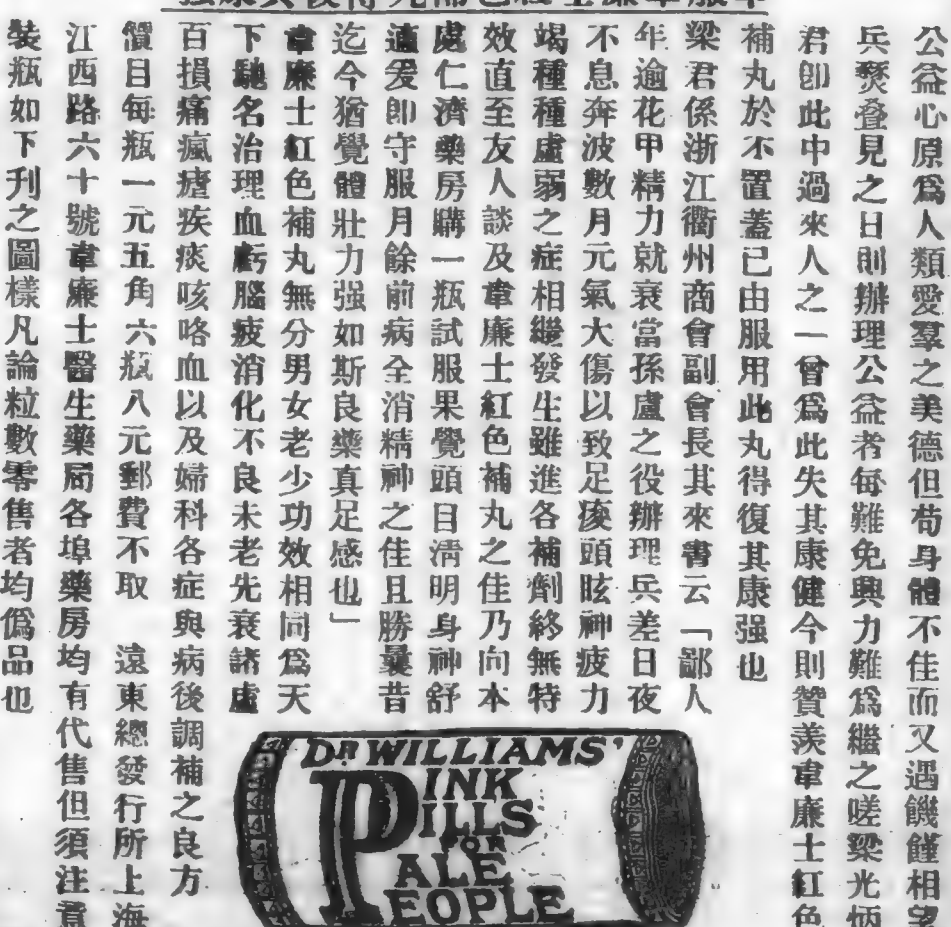 公益心原爲人類愛羣之美德但苟身體不佳而又遇饑饉相望
兵燹叠見之日則辦理公益者每難免興力難爲繼之嗟梁光炳
君卽此中過來人之一曾爲此失其康健今則贊羨韋廉士紅色
補丸於不置蓋已由服用此丸得復其康强也
梁君係浙江衢州商會副會長其來書云「鄙人
年逾花甲精力就衰當孫盧之役辦理兵差日夜
不息奔波數月元氣大傷以致足痠頭眩神疲力
竭種種虛弱之症相繼發生雖進各補劑終無特
效直至友人談及韋廉士紅色補丸之佳乃向本
處仁濟藥房購一瓶試服果覺頭目淸明身神舒
適爰卽守服月餘前病全消精神之佳且勝曩昔
迄今猶覺體壯力强如斯良藥真足感也」
韋廉士紅色補丸無分男女老少功效相同爲天
下馳名治理血虧腦疲消化不良未老先衰諸虛
百損痛瘋瘧疾痰咳咯血以及婦科各症與病後調補之良方
價目每瓶一元五角六瓶八元郵費不取 遠東總發行所上海
江西路六十號韋廉士醫生藥局各埠藥房均有代售但須注意
裝瓶如下刋之圖樣凡論粒數零售者均僞品也
DR WILLIAMS'
PINK
PILLS
FOR
PALE
PEOPLE